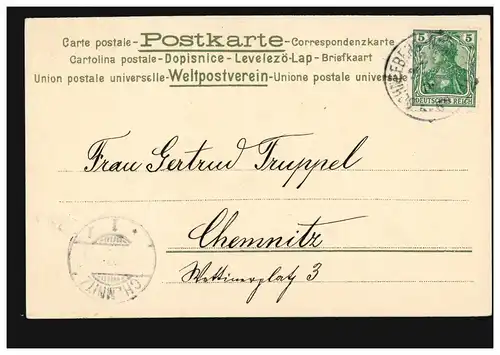 Carte postale - Postkarte - Correspondenzkarte
Cartolina postale - Dopisnice - Levelezö-Lap - Briefkaart
Union postale universelle - Weltpostverein - Unione postale universale
5 5
DEUTSCHES REICH
Frau Gertrud Truppel
Chemnitz
Wettinerplatz 3